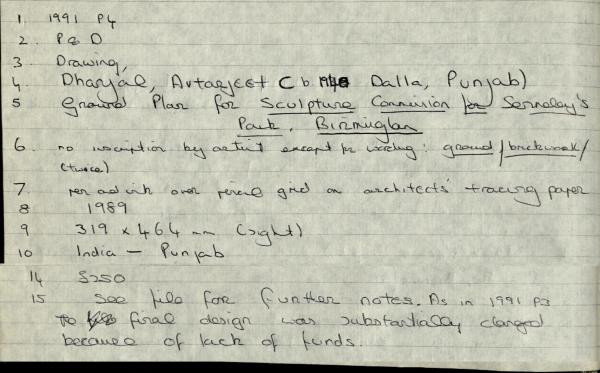 1. 1991 P4
2. P & D
3. Drawing,
4. Dhanjal, Avtarjeet C b 1940 Dalla, Punjab)
5 Ground Plan for Sculpture Commission for Sennaley's
Park, Birmingham
6. no inscription by artist except for wording: ground/brickwork/
(twice)
7 pen and ink over pencil grid on architects' tracing paper
8 1989
9 319 x 464 mm (sight)
10 India - Punjab
14 S250
15 See file for further notes. As in 1991 P3
final design was substantially changed
because of lack of funds.